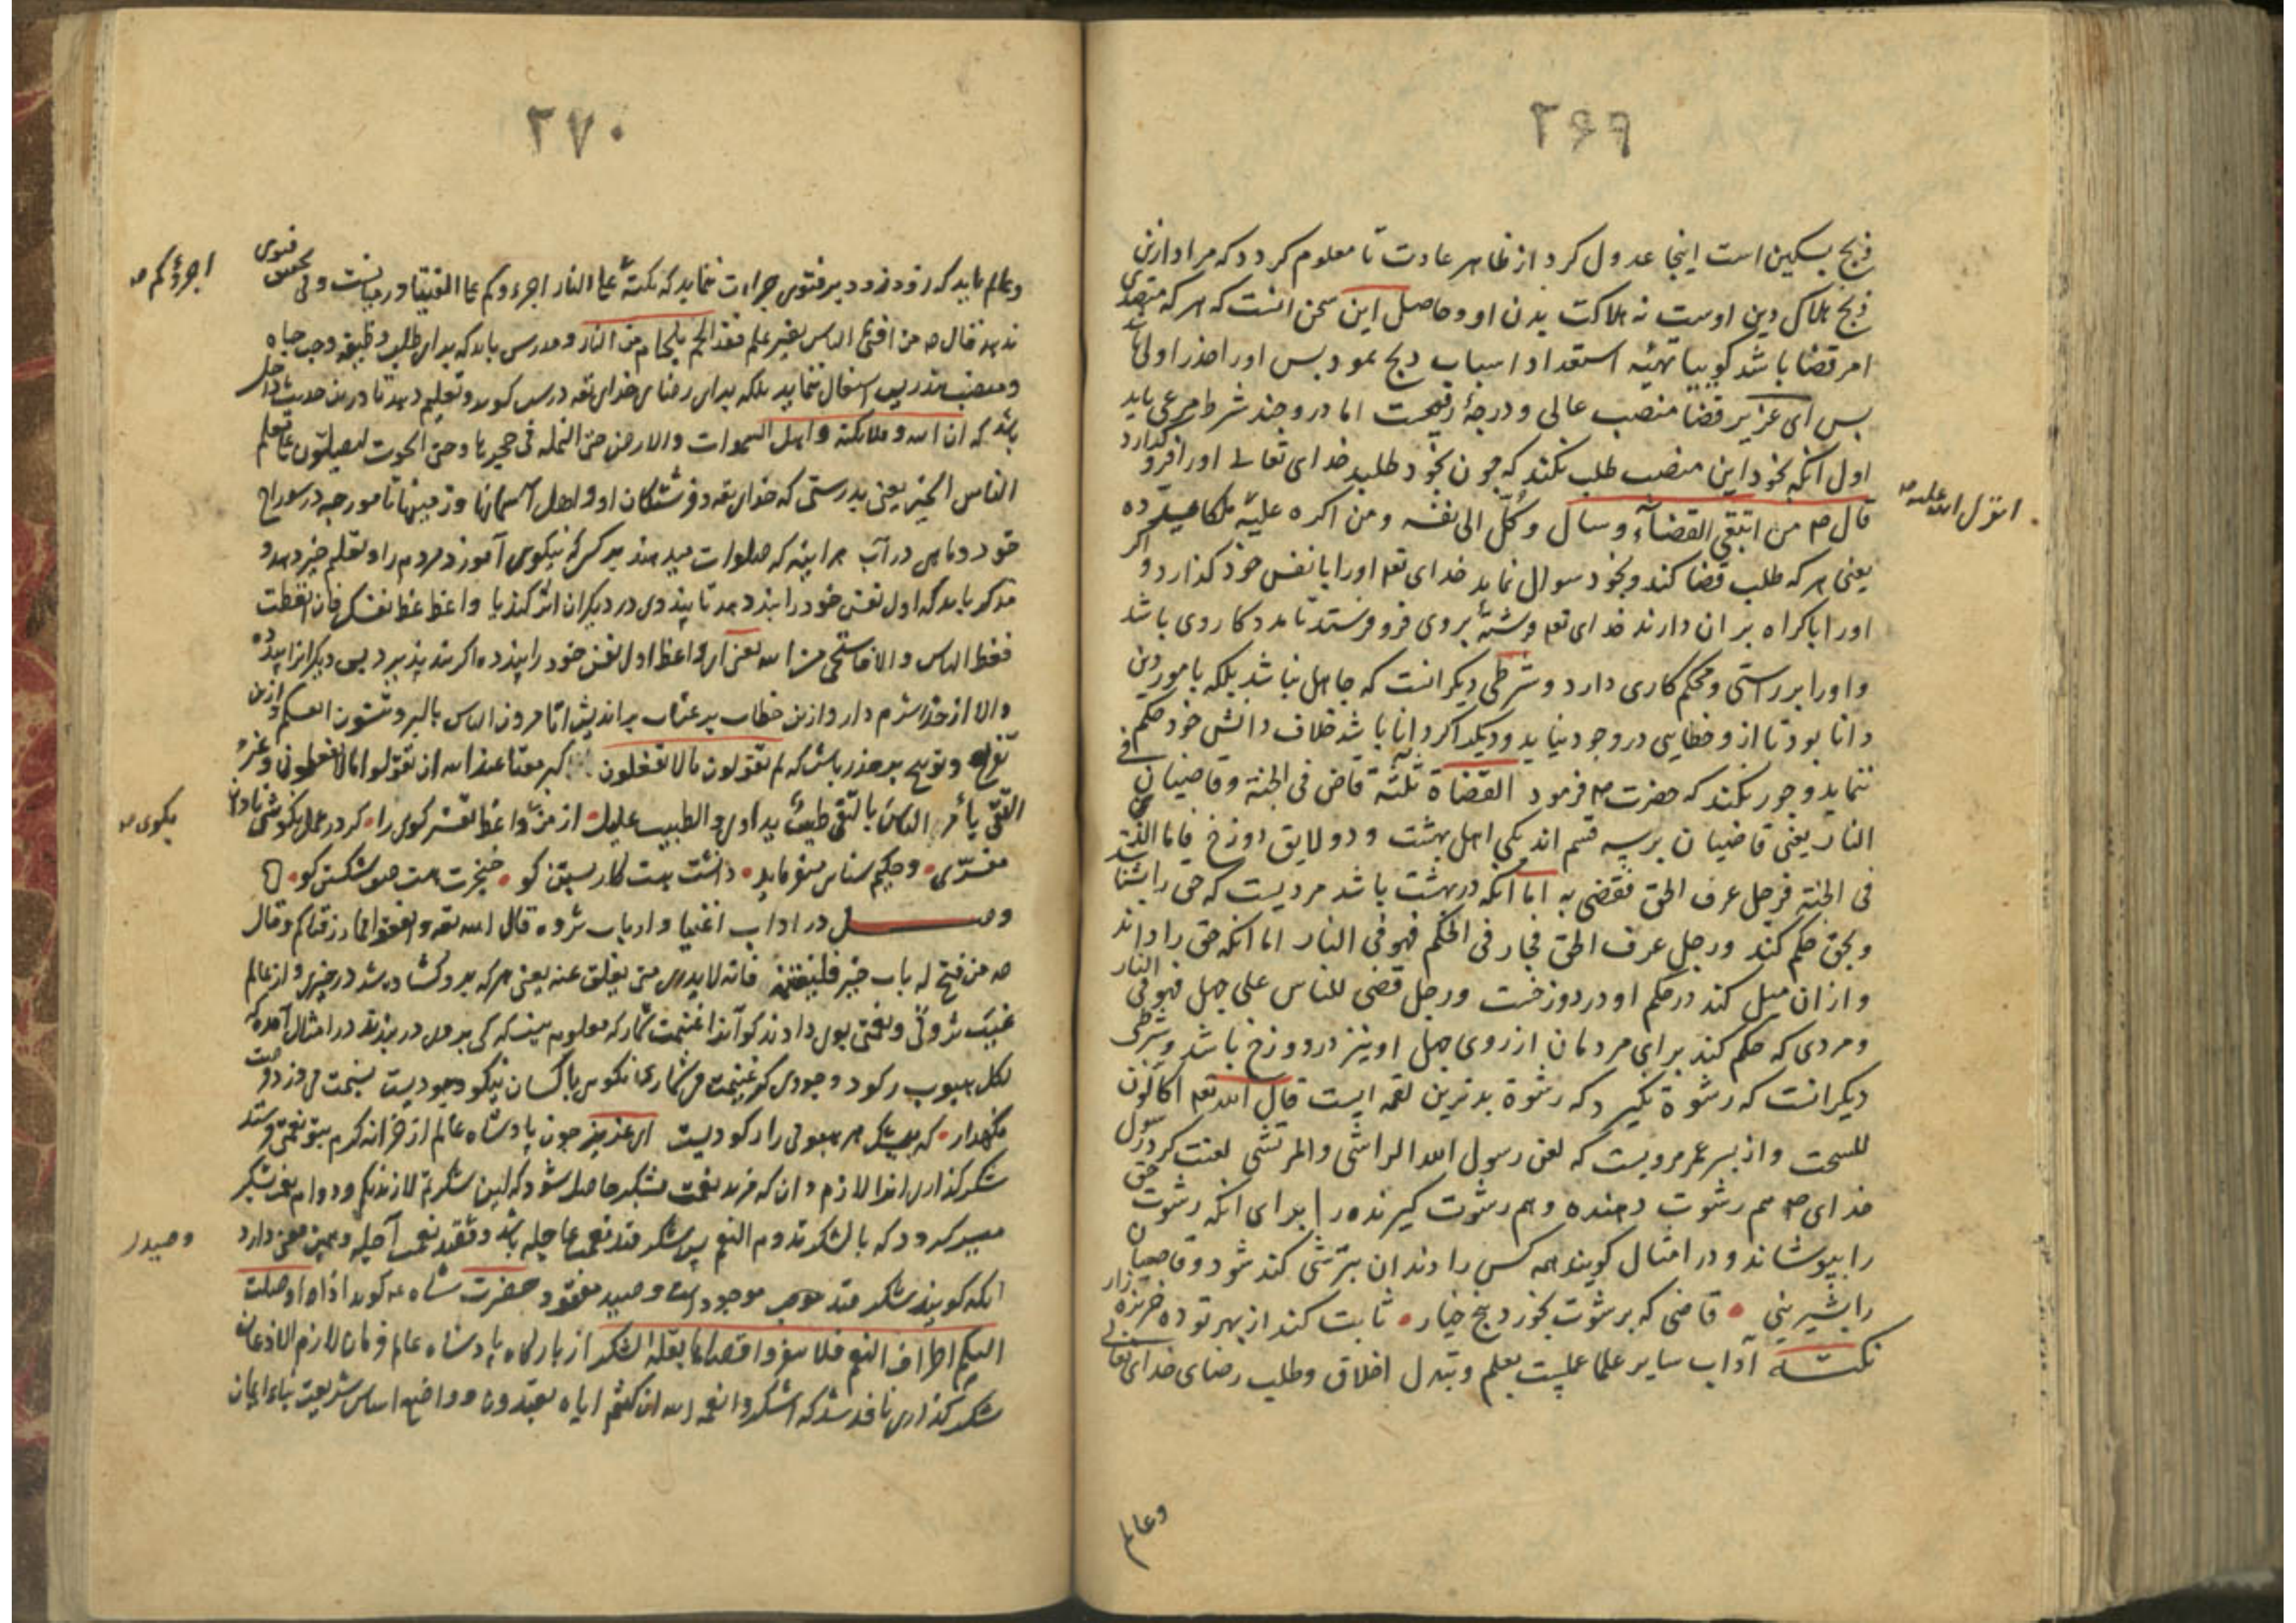 ۲۶۹
ذبح بسکین است اینجا عدول کرد از ظاهر عادت تا معلوم کردد که مراد ازین
ذبح هلاک دین اوست نه هلاکت بدن او و حاصل این سخن انست که هر که متصدی
امر قضا باشد کوییا تهیّه استعداد اسباب ذبح نمود بس اورا حذر اولی باشد
بس ای عزیز قضا منصب عالی و درجهٔ رفیعست اما درو چند شرط مرعی باید
اول انکه بخود این منصب طلب نکند که چون بخود طلبد خدای تعالی اورا فرو گذارد
قال ص من ابتغی القضاء و سال وکّل الی نفسه و من اکره علیه ملکا یسدده
انزل الله علیه ص
یعنی هر که طلب قضا کند و بخود سوال نماید خدای تعه اورا با نفس خود کذارد و اکر
اورا باکراه بر ان دارند خدای تعه فرشتهٔ بروی فرو فرستد تا مدد کار وی باشد
و اورا بر راستی و محکم کاری دارد و شرطی دیکر انست که جاهل نباشد بلکه بامور دین
دانا بود تا از و خطایی در وجود نیاید و دیکر اکر دانا باشد خلاف دانش خود حکم
ننماید و جور نکند که حضرت ص فرمود القضاة ثلثة قاض فی الجنة و قاضیان فی
النار یعنی قاضیان بر سه قسم اند یکی اهل بهشت و دو لایق دوزخ فاما الذی
فی الجنة فرجل عرف الحق فقضی به اما انکه در بهشت باشد مردیست که حق را شناسد
و بحق حکم کند و رجل عرف الحق فجار فی الحکم فهو فی النار اما انکه حق را داند
و از ان میل کند در حکم او در دوزخست و رجل قضی للناس علی جهل فهو فی النار
و مردی که حکم کند برای مردمان از روی جهل او نیز در دوزخ باشد و شرطی
دیکر انست که رشوة نکیرد که رشوة بدترین لقمه ایست قال الله تعه اکالون
للسحت و از پسر عمر مرویست که لعن رسول الله الراشی و المرتشی لعنت کرد رسول
خدای ص هم رشوت دهنده و هم رشوت کیرنده را برای انکه رشوت حق
را بپوشاند و در امثال کویند همه کس را دندان بترشی کند شود و قاضیان
را بشیرینی • قاضی که برشوت بخورد پنج خیار • ثابت کند از بهر تو ده خربزه زار
نکتـــه آداب سایر علما عملیست بعلم و تبدل اخلاق و طلب رضای خدای تعالی
وعالم
۲۷۰
وعالم باید که زود زود بر فتوی جراءت ننماید که نکتهٔ علی النار اجرءوکم علی الفتیا در میانست و بی تحقیق فتوی
اجرؤکم ص
ندهد قال ص من افتی الناس بغیر علم فقد الجم بلجام من النار و مدرس باید که برای طلب وظیفه و حب جاه
و منصب بتدریس اشتغال ننماید بلکه برای رضای خدای تعه درس کوید و تعلیم دهد تا درین حدیث داخل
باشد که ان الله و ملائکته و اهل السموات والارض حتی النملة فی جحرها و حتی الحوت لیصلّون علی معلم
الناس الخیر یعنی بدرستی که خدای تعه و فرشتکان او و اهل آسمانها و زمینها تا مورچه در سوراخ
خود و ماهی در آب هراینه که صلوات میدهند بر کسی که نیکوی آموزد مردم را و تعلم خیر دهد و
مذکر باید که اول نفس خود را پند دهد تا پند وی در دیکران اثر کند یا واعظ عظ نفسک فان اتعظت
فعظ الناس و الا فاستحی من الله یعنی ای واعظ اول نفس خود را پند ده اکر پند پذیرد پس دیکرانرا پند ده
والا از خدا شرم دار و ازین خطاب بر عتاب براندیش اتامرون الناس بالبر و تنسون انفسکم و ازین
تقریع و توبیخ بر حذر باش که لم تقولون مالا تفعلون کبر مقتا عند الله ان تقولوا مالا تفعلون و غیر
التقی یأمر الناس بالتقی طبیب یداوی و الطبیب علیل • از من واعظ نفس کوی را • کر در عمل نکوشی نادان
بکوی ص
مفسّری • و حکیم سنایی میفرماید • دانشت هست کار بستن کو • خنجرت هست صف شکستن کو •
وصـــــل در اداب اغنیا و ارباب ثروه قال الله تعه و انفقوا مما رزقناکم و قال
ص من فتح له باب خیر فلینتهز فانه لا یدری متی یغلق عنه یعنی هر که برو کشاده شد در خیری و از عالم
غیب ثروتی و نعمتی بوی دادند کو آنرا غنیمت شمار که معلوم نیست که کی بروی در بندند در امثال آمده که
لکل هبوب رکود وجودی که غنیمت می شماری نکویی با کسان نیکو وجودیست
نکهدار • که بیشک هر هبوبی را رکودیست ای عزیز چون پادشاه عالم از خزانه کرم بتو نعمتی فرستد
شکر کذاری انرا لازم دان که مزید نعمت بشکر حاصل شود که لئن شکرتم لازیدنکم و دوام نعمت بشکر
میسر کردد که بالشکر تدوم النعم پس شکر قید نعمت عاجله باشد و قید نعمت آجله و همین معنی دارد
وصید ر
انکه کویند شکر قید موجود است و صید مفقود حضرت شاه عه کوید اذا اوصلت
الیکم اطراف النعم فلا تنفروا اقصاها بقلة الشکر از بارکاه پادشاه عالم فرمان لازم الاذعان
شکر کذاری نافذ شد که اشکروا نعمة الله ان کنتم ایاه تعبدون و واضع اساس شریعت بناء ایمان